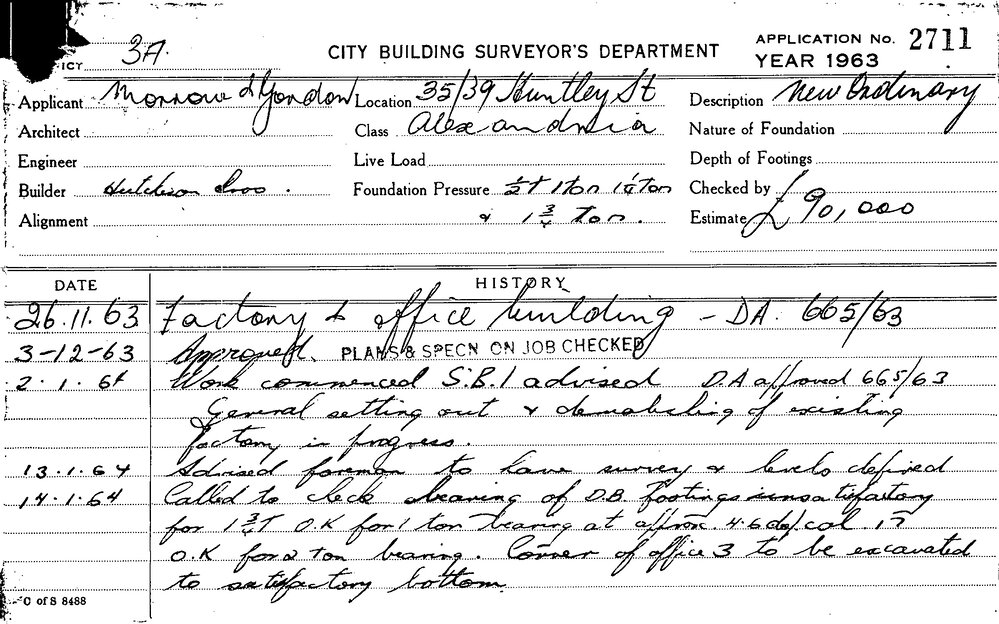 3A.
CITY BUILDING SURVEYOR'S DEPARTMENT
APPLICATION No. 2711
YEAR 1963
Applicant Morrow & Gordon Location 35/39 Huntley St Description New Ordinary
Architect Class Alexandria Nature of Foundation
Engineer Live Load Depth of Footings
Builder Hutcheson Bros. Foundation Pressure ½T 1 Ton 1¼ Ton Checked by
Alignment & 1¾ Ton. Estimate £90,000
DATE HISTORY
26.11.63 Factory & office building - DA. 665/63
3-12-63 Approved. PLANS & SPECN ON JOB CHECKED
2.1.64 Work commenced S.B.I advised D.A approved 665/63
General setting out & demolishing of existing
factory in progress.
13.1.64 Advised foreman to have survey & levels defined
14.1.64 Called to check bearing of D.B. Footings unsatisfactory
for 1¾T O.K for 1 ton bearing at approx. 4.6 col. 17
O.K for 2 Ton bearing. Corner of office 3 to be excavated
to satisfactory bottom.
C of S 8488